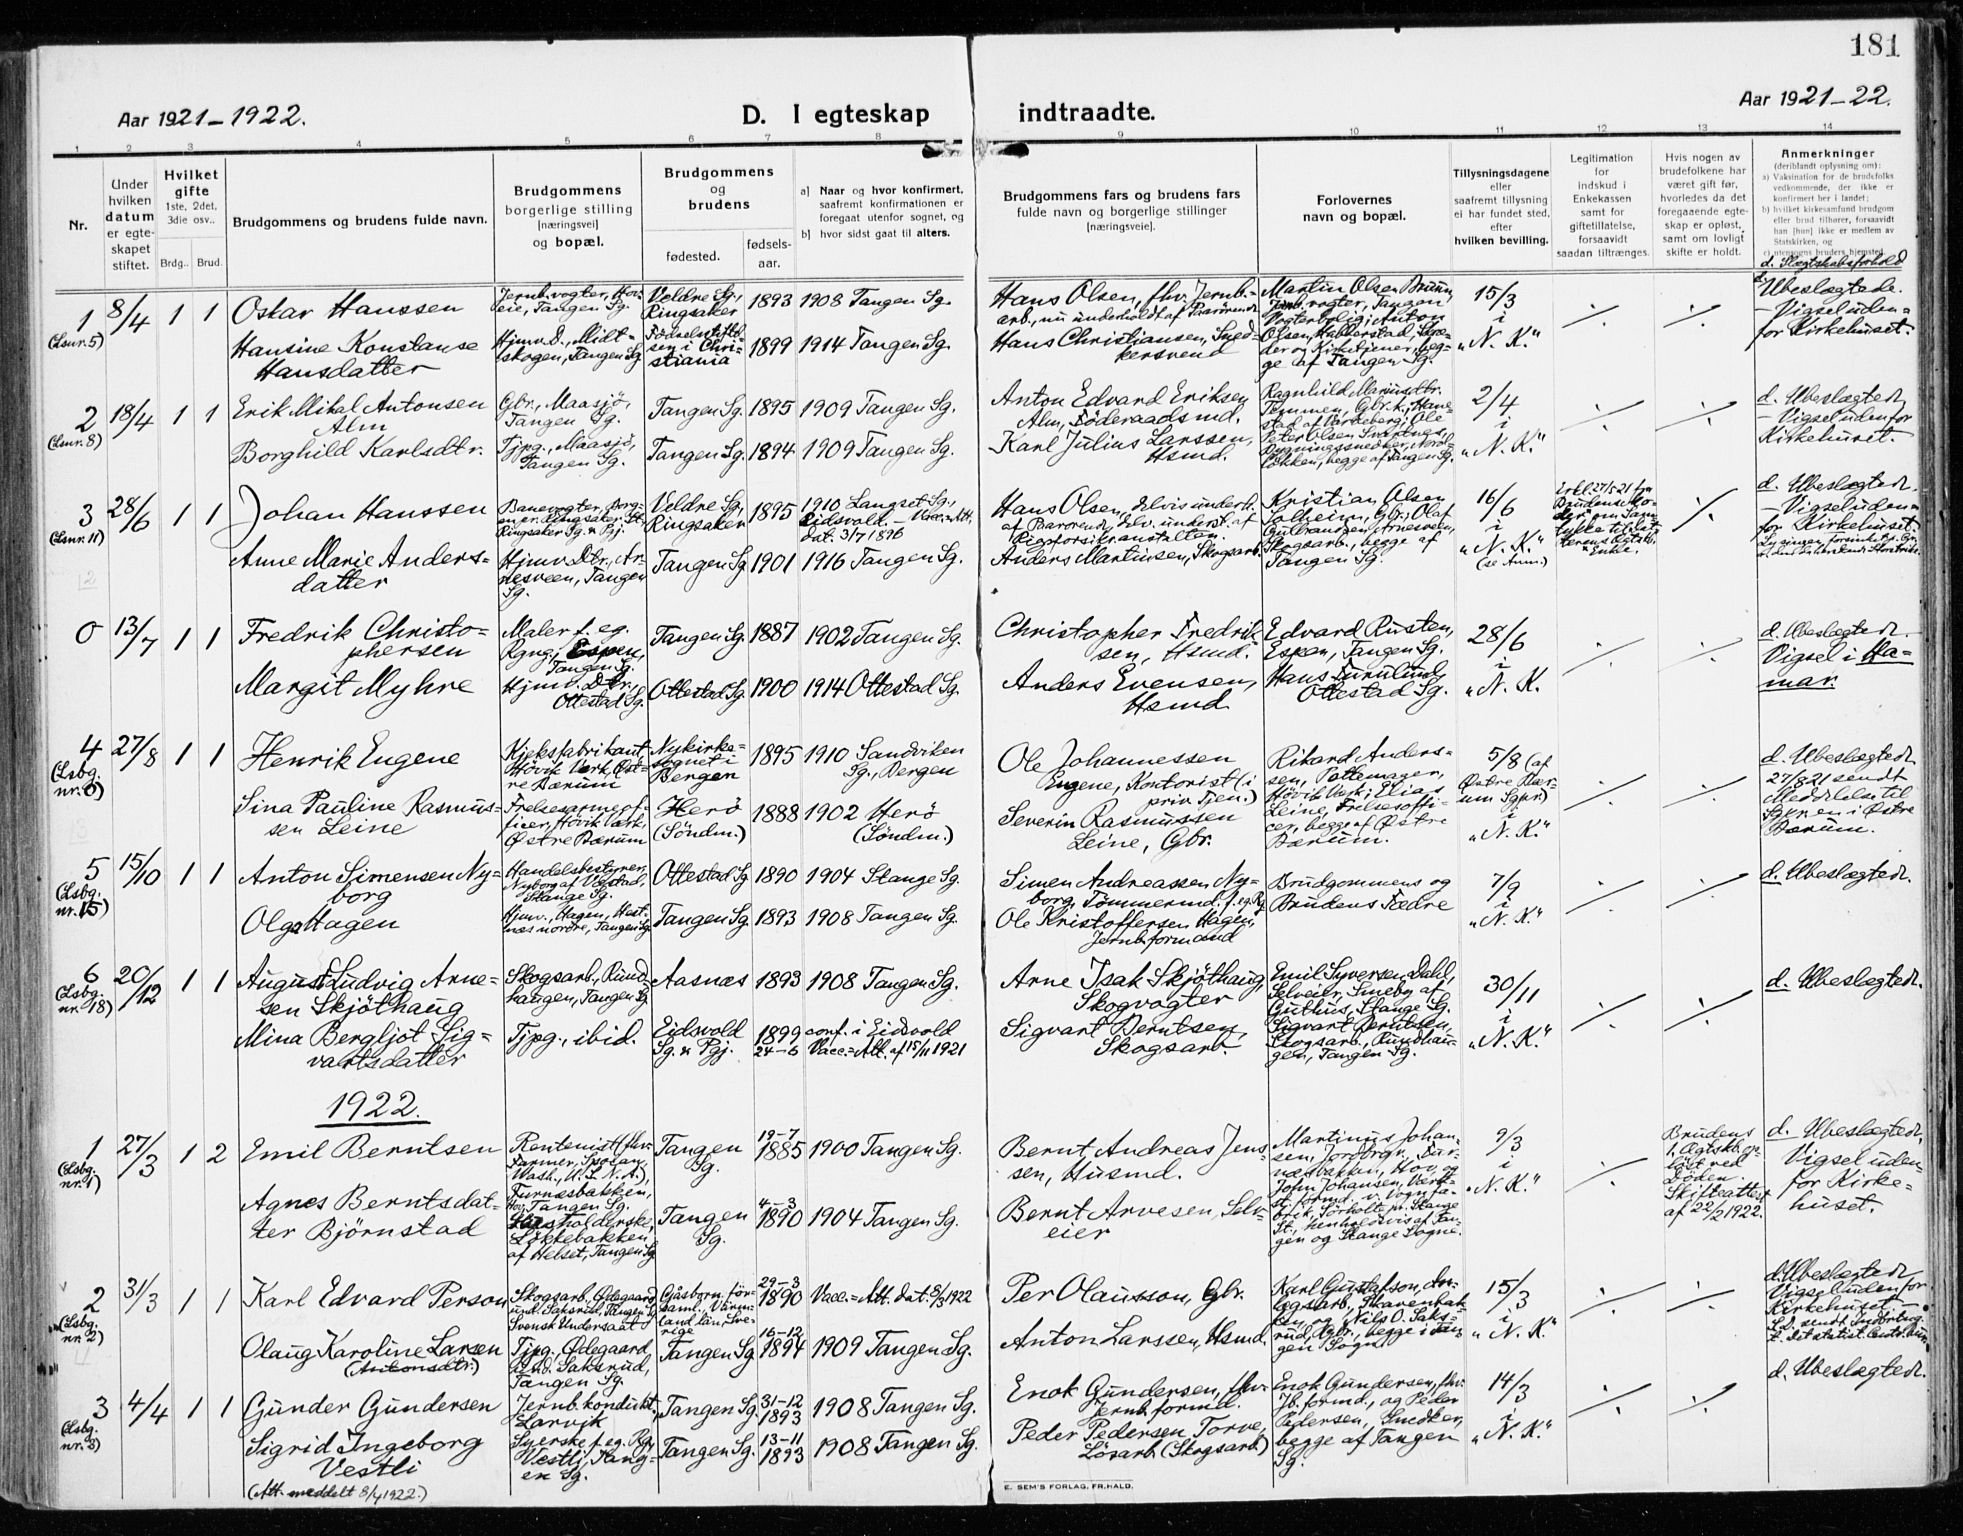 181
Aar 1921-1922.
D. I egteskap indtraadte.
Aar 1921-22.
1 2 3 4 5 6 7 8 9 10 11 12 13 14
Nr.
Under hvilken datum er egteskapet stiftet.
Hvilket gifte
1ste, 2det, 3die osv..
Brdg.. Brud.
Brudgommens og brudens fulde navn.
Brudgommens borgerlige stilling [næringsvei] og bopæl.
Brudgommens og brudens
fødested.
fødsels-aar.
a] Naar og hvor konfirmert, saafremt konfirmationen er foregaat utenfor sognet, og
b] hvor sidst gaat til alters.
Brudgommens fars og brudens fars fulde navn og borgerlige stillinger [næringsveie].
Forlovernes navn og bopæl.
Tillysningsdagene eller saafremt tillysning ei har fundet sted, efter hvilken bevilling.
Legitimation for indskud i Enkekassen samt for giftetillatelse, forsaavidt saadan tiltrænges.
Hvis nogen av brudefolkene har været gift før, hvorledes da det foregaaende egteskap er opløst, samt om lovligt skifte er holdt.
Anmerkninger
(deriblandt oplysning om):
a) Vaksination for de brudefolks vedkommende, der ikke er konfirmert her i landet;
b) hvilket kirkesamfund brudgom eller brud tilhører, forsaavidt han [hun] ikke er medlem av Statskirken, og
d. Slægtskabsforhold
1 (Lsnr. 5) 8/4 1 1 Oskar Hanssen
Jernb.vogter, Hoveie, Tangen Sg.
Veldre Sg., Ringsaker 1893 1908 Tangen Sg.
Hans Olsen, fhv. Jernb.=arb., nu underholdt af Paarørende
15/3 i "N. K."
d. Ubeslægtede. - Vigsel udenfor Kirkehuset.
Hansine Konstanse Hansdatter
Hjmv. D., Midtskogen, Tangen Sg.
Fødselsstiftelsen i Christiania 1899 1914 Tangen Sg.
Hans Christiansen, Snedkersvend
Martin Olsen Bruun, Jernb.vogter, Tangen Vogterbolig; Anton Olsen Halberstad, Skræder og Kirketjener, begge af Tangen Sg.
2 (Lsnr. 8) 18/4 1 1 Erik Mikal Antonsen Alm
Gbr., Maasjø, Tangen Sg.
Tangen Sg. 1895 1909 Tangen Sg.
Anton Edvard Eriksen Alm, Föderaadsmd.
2/4 i "N. K."
d. Ubeslægtede - Vigsel udenfor Kirkehuset.
Borghild Karlsdtr.
Tjpg., Maasjö, Tangen Sg.
Tangen Sg. 1894 1909 Tangen Sg.
Karl Julius Larssen, Hsmd.
begge af Tangen Sg.
3 (Lsnr. 11) 28/6 1 1 Johan Hanssen
Banevogter,
Veldre Sg., Ringsaker 1895 1910 Langset Sg., Eidsvold. - Vacc.=Att. dat. 3/7 1896
Hans Olsen, delvis underh. af Paarørende, delv. underst. af Rigsforsikranstalten.
Kristian Olsen Solheim, Gbr.; Olaf Gulbrandsen, Arnesveen, Skogsarb., begge af Tangen Sg.
16/6 i "N. K." (se Anm.)
d. Ubeslægtede. - Vigsel udenfor Kirkehuset.
Anne Marie Andersdatter
Hjmv. Dtr., Arnesveen, Tangen Sg.
Tangen Sg. 1901 1916 Tangen Sg.
Anders Martinsen, Skogsarb.
0 13/7 1 1 Fredrik Christophersen
Maler f. eg. Rgng., Espen, Tangen Sg.
Tangen Sg. 1887 1902 Tangen Sg.
Christopher Fredriksen, Hsmd.
Edvard Rusten, Espen, Tangen Sg.
28/6 i "N. K.
d. Ubeslægtede. Vigsel i Hamar.
Margit Myhre
Hjmv. Dtr., Ottestad Sg.
Ottestad Sg. 1900 1914 Ottestad Sg.
Anders Evensen, Hsmd.
Hans Furulund, Ottestad Sg.
4 (Lsbg. nr. 6) 27/8 1 1 Henrik Eugene
Kjeksfabrikant Høvik Værk, Østre Bærum
Nykirkesognet i Bergen 1895 1910 Sandviken Sg., Bergen
Ole Johannessen Eugene, Kontorist (i priv. Tjen.)
Rikard Anderssen, Pottemager, Høvik Verk; Elias Leine, Frelsesofficer, begge af Østre Bærum.
5/8 (af Østre Bærum Sgpr.) "N. K."
d. Ubeslægtede. 27/8 21 sendt Meddelelse til Sgpr.en i Østre Bærum.
Sina Pauline Rasmussen Leine
Frelsesarmeofficer, Høvik Værk, Østre Bærum
Herö (Söndm.) 1888 1902 Herö (Söndm.)
Severin Rasmussen Leine, Gbr.
5 (Lsbg. nr. 15) 15/10 1 1 Anton Simensen Nyborg
Handelsbestyrer, Nyborg af Vestad, Stange Sg.
Ottestad Sg. 1890 1904 Stange Sg.
Simen Andreassen Nyborg, Tömmermd. f. eg. Rg.
Brudgommens og Brudens Fædre
7/9 i "N. K."
d. Ubeslægtede.
Olga Hagen
Hjmv., Hagen, Hestnæs nordre, Tangen Sg.
Tangen Sg. 1893 1908 Tangen Sg.
Ole Kristoffersen Hagen, Jernb.formand
6 (Lsbg. nr. 18) 20/12 1 1 August Ludvig Arnesen Skjöthaug
Skogsarb., Rundhaugen, Tangen Sg.
Aasnæs 1893 1908 Tangen Sg.
Arne Isak Skjöthaug, Skogvogter
Emil Syversen Dahl, Selveier, Smeby af Guthus, Stange Sg. Sigvart Berntsen, Skogsarb., Rundhaugen, Tangen Sg.
30/11 i "N. K."
d. Ubeslægtede.
Mina Bergljot Sigvartsdatter
Tjpg., ibid.
Eidsvold Sg. & Pgj. 1899 24-6 conf. i Eidsvold Vacc.=Att. af 15/11 1921
Sigvart Berntsen, Skogsarb.
1922.
1 (Lsbg. nr. 1) 27/3 1 2 Emil Berntsen
Rentenist (fhv. Farmer, Spokan, Wash., U. S. N. A.), Furnæsbakken, Hov, Tangen Sg.
Tangen Sg. 19-7 1885 1900 Tangen Sg.
Bernt Andreas Jenssen, Husmd.
Martinus Johansen, Jordbrgr., Furnæsbakken, Hov, og John Johansen, Værkst.formd. v. Vognfabrik, Sörholte pr. Stange St., henholdsvis af Tangen og Stange Sogne.
9/3 i "N. K."
Brudens 1. Ægtsk. oplöst ved Döden Skifteattest af 22/2 1922.
d. Ubeslægtede, Vigsel udenfor Kirkehuset.
Agnes Berntsdatter Björnstad
Husholderske, Løkkebakken af Helset, Tangen Sg.
Tangen Sg. 4-3 1890 1904 Tangen Sg.
Bernt Arvesen, Selveier
2 (Lsbg. nr. 2) 31/3 1 1 Karl Edvard Person
Skogsarb., Ødegaard und. Saksrud, Tangen S. Svensk Undersaat
Gåsborn församl., Värmland län, Sverige 29-3 1890 Vacc.=Att. dat. 8/3 1922
Per Olausson, Gbr.
Karl Gustafson, Anlægsarb., Skavenbakken, og Nils O. Saksrud, Gbr., begge i Tangen Sogn.
15/3 i "N. K."
d. Ubeslægtede Vigsel udenfor Kirkehuset -
Olaug Karoline Larsen (Antonsdtr.)
Tjpg., Ødegaard, und. Saksrud, Tangen Sg.
Tangen Sg. 16-12 1894 1909 Tangen Sg.
Anton Larssen, Hsmd.
3 (Lsbg. nr. 3) 4/4 1 1 Gunder Gundersen
Jernb.konduktör, Larvik
Tangen Sg. 31-12 1893 1908 Tangen Sg.
Enok Gundersen, fhv. Jernb.formd.
Enok Gundersen, fhv. Jb.formd., og Peder Pedersen, Snedker, begge af Tangen Sg.
14/3 i "N. K."
d. Ubeslægtede.
Sigrid Ingeborg Vestli
Syerske f. eg. Rg., Vestli, Tangen Sg.
Tangen Sg. 13-11 1893 1908 Tangen Sg.
Peder Pedersen Torve, Lösarb. (Skogsarb.)
(Att. meddelt 8/4 1922.)
E. SEM'S FORLAG, FR.HALD.